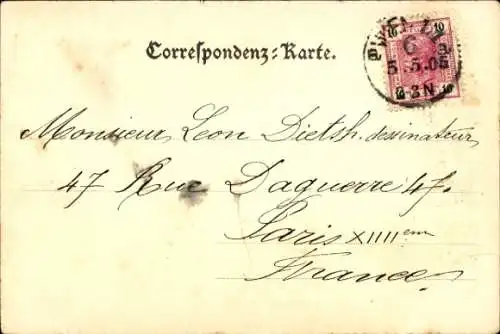 Correspondenz-Karte.
10 10
WIEN
6
5.5.05
2-3N
10 10
Monsieur Leon Dietsh. dessinateur
47 Rue Daguerre 47.
Paris XIIII em
France.